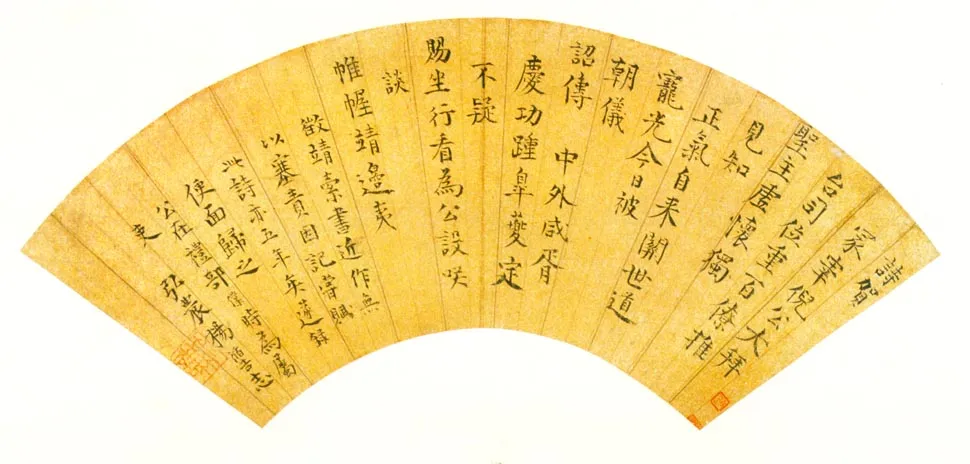 詩賀
冢宰倪公大拜
台司位重百僚推
聖主虛懷獨
見知
正氣自来關世道
寵光今日被
朝儀
詔傳
中外咸胥
慶功踵皐夔定
不疑
賜坐行看為公設咲
談
帷幄靖邊夷
徵靖索書近作無
以塞責因記嘗賦
此詩亦五年矣遂録
便面歸之
公在禮部 時為屬
吏 弘農楊 志